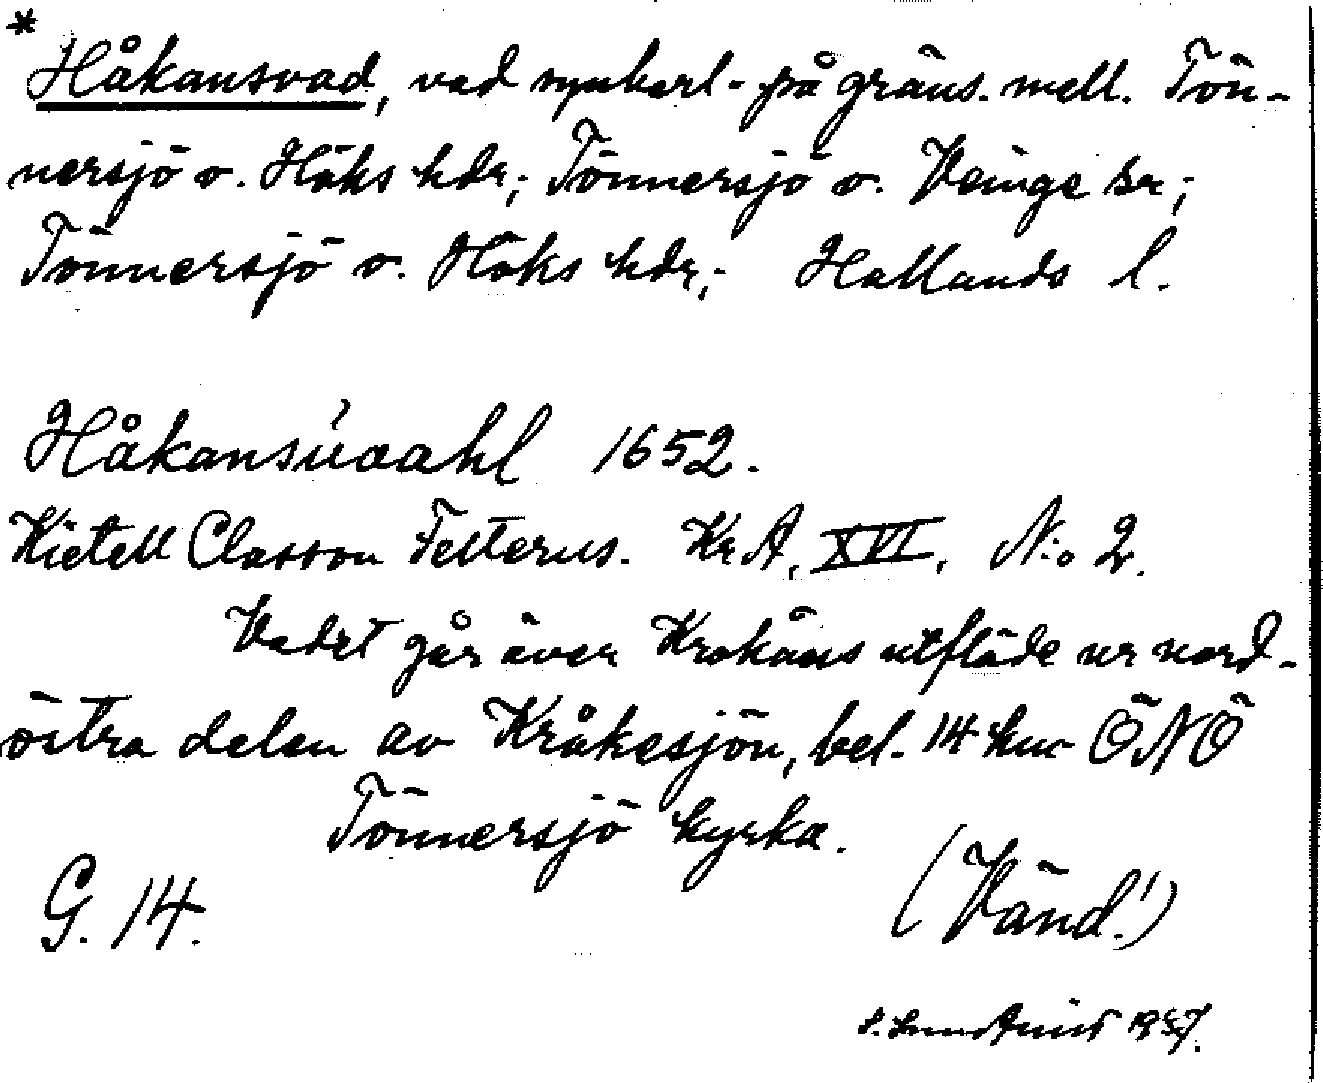 * Håkansvad, vad synbarl. på gräns. mell. Tön-
nersjö o. Höks hdr; Tönnersjö o. Veinge snr;
Tönnersjö o. Höks hdr; Hallands l.
Håkansúaahl 1652.
Kietell Classon Felterus. KrA, XVI, N:o 2.
Vadet går över Krokåns utflöde ur nord-
östra delen av Kråkesjön, bel. 14 km ÖNÖ
Tönnersjö kyrka.
G. 14.
(Vänd!)